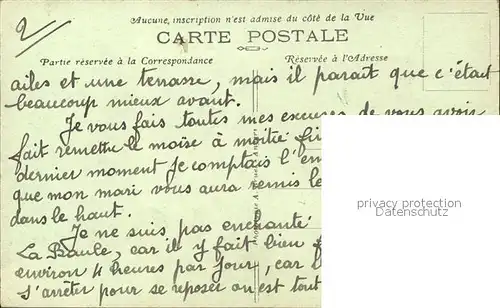 2/
Aucune, inscription n'est admise du côté de la Vue
CARTE POSTALE
Partie réservée à la Correspondance
Réservée à l'Adresse
ailes et une terrasse, mais il parait que c'était
beaucoup mieux avant.
Je vous fais toutes mes excuses de vous avoir
fait remettre le moïse à moitié
dernier moment je comptais
que mon mari vous aura remis
dans le haut.
Je ne suis pas enchanté
La Baule, car il y fait bien
environ 4 heures par jour, car
s'arrêter pour se reposer on est tout
privacy protection
Datenschutz